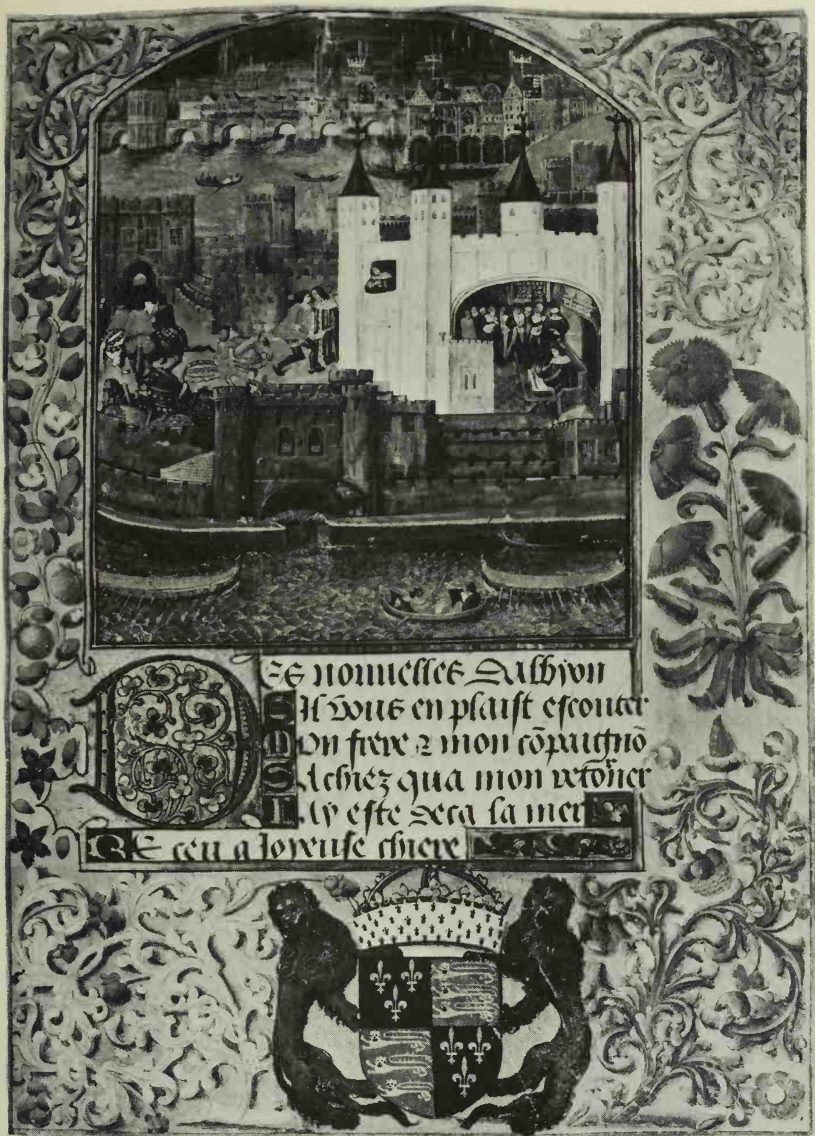 Des nouuelles Dalbyon
Sil vous en plaist escouter
Mon frere ⁊ mon cōpaignō
Sachiez qua mon retōner
Iay este deca la mer
Receu a Ioyeuse chiere